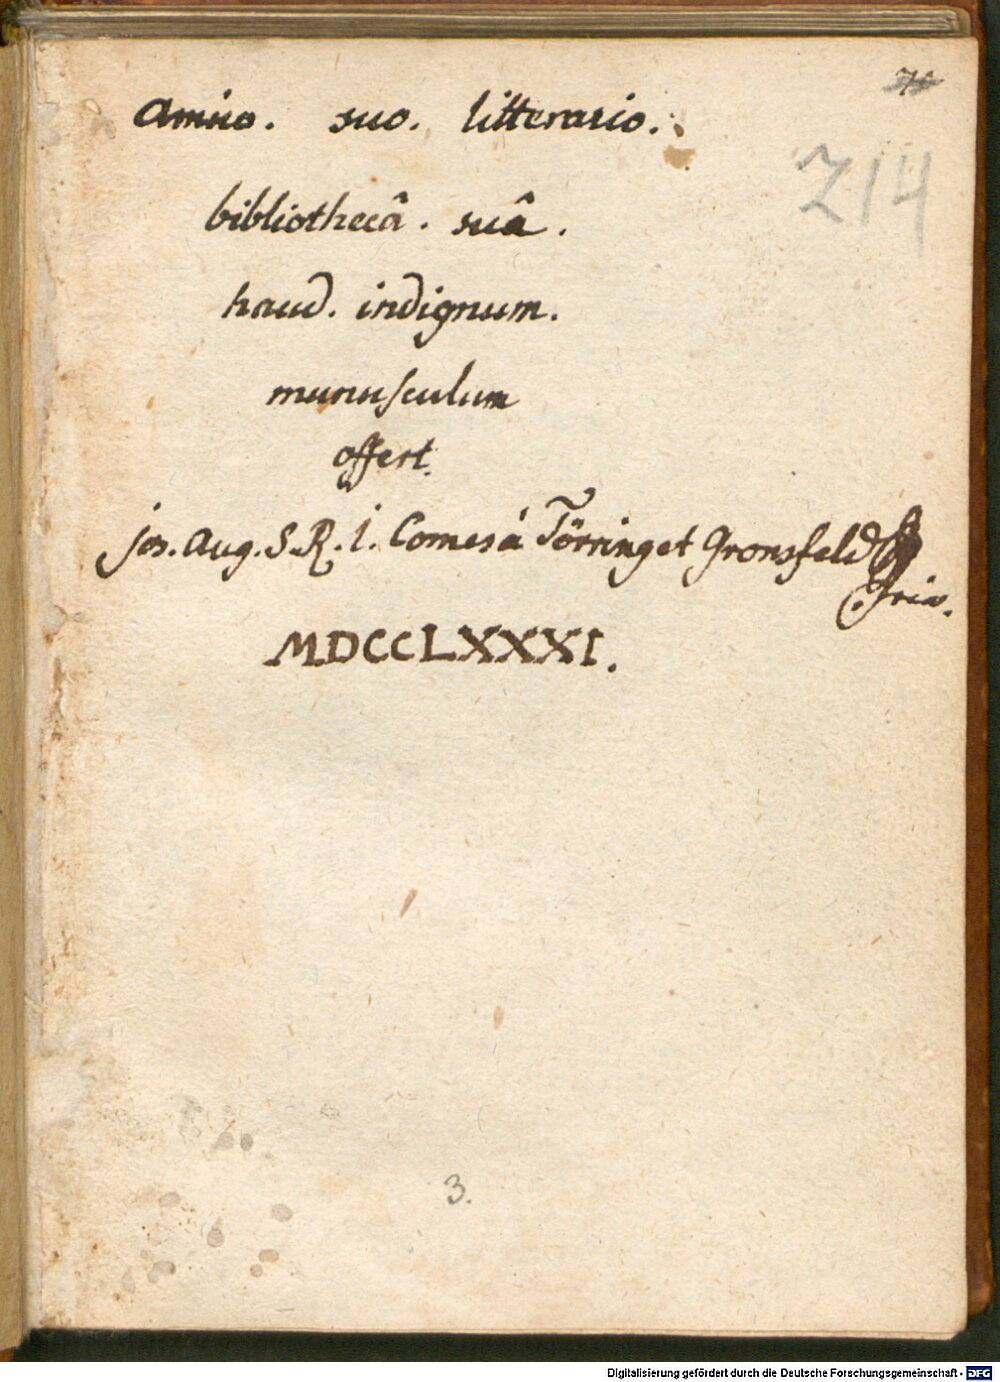 amico. suo. litterario.
214
bibliothecâ. suâ.
haud. indignum.
munusculum
offert.
jos. aug. S. R. I. Comes á Törring et Gronsfeld
MDCCLXXXI.
3.
Digitalisierung gefördert durch die Deutsche Forschungsgemeinschaft - DFG